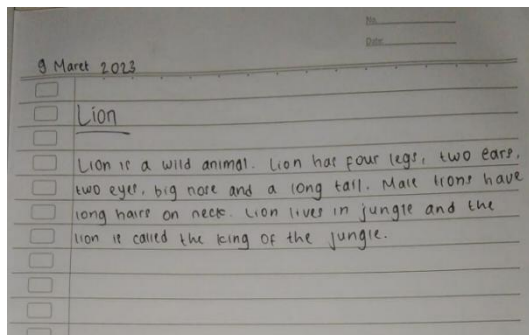 No.
Date
9 Maret 2023
Lion
Lion is a wild animal. Lion has four legs, two ears,
two eyes, big nose and a long tail. Male lions have
long hairs on neck. Lion lives in jungle and the
lion is called the king of the jungle.